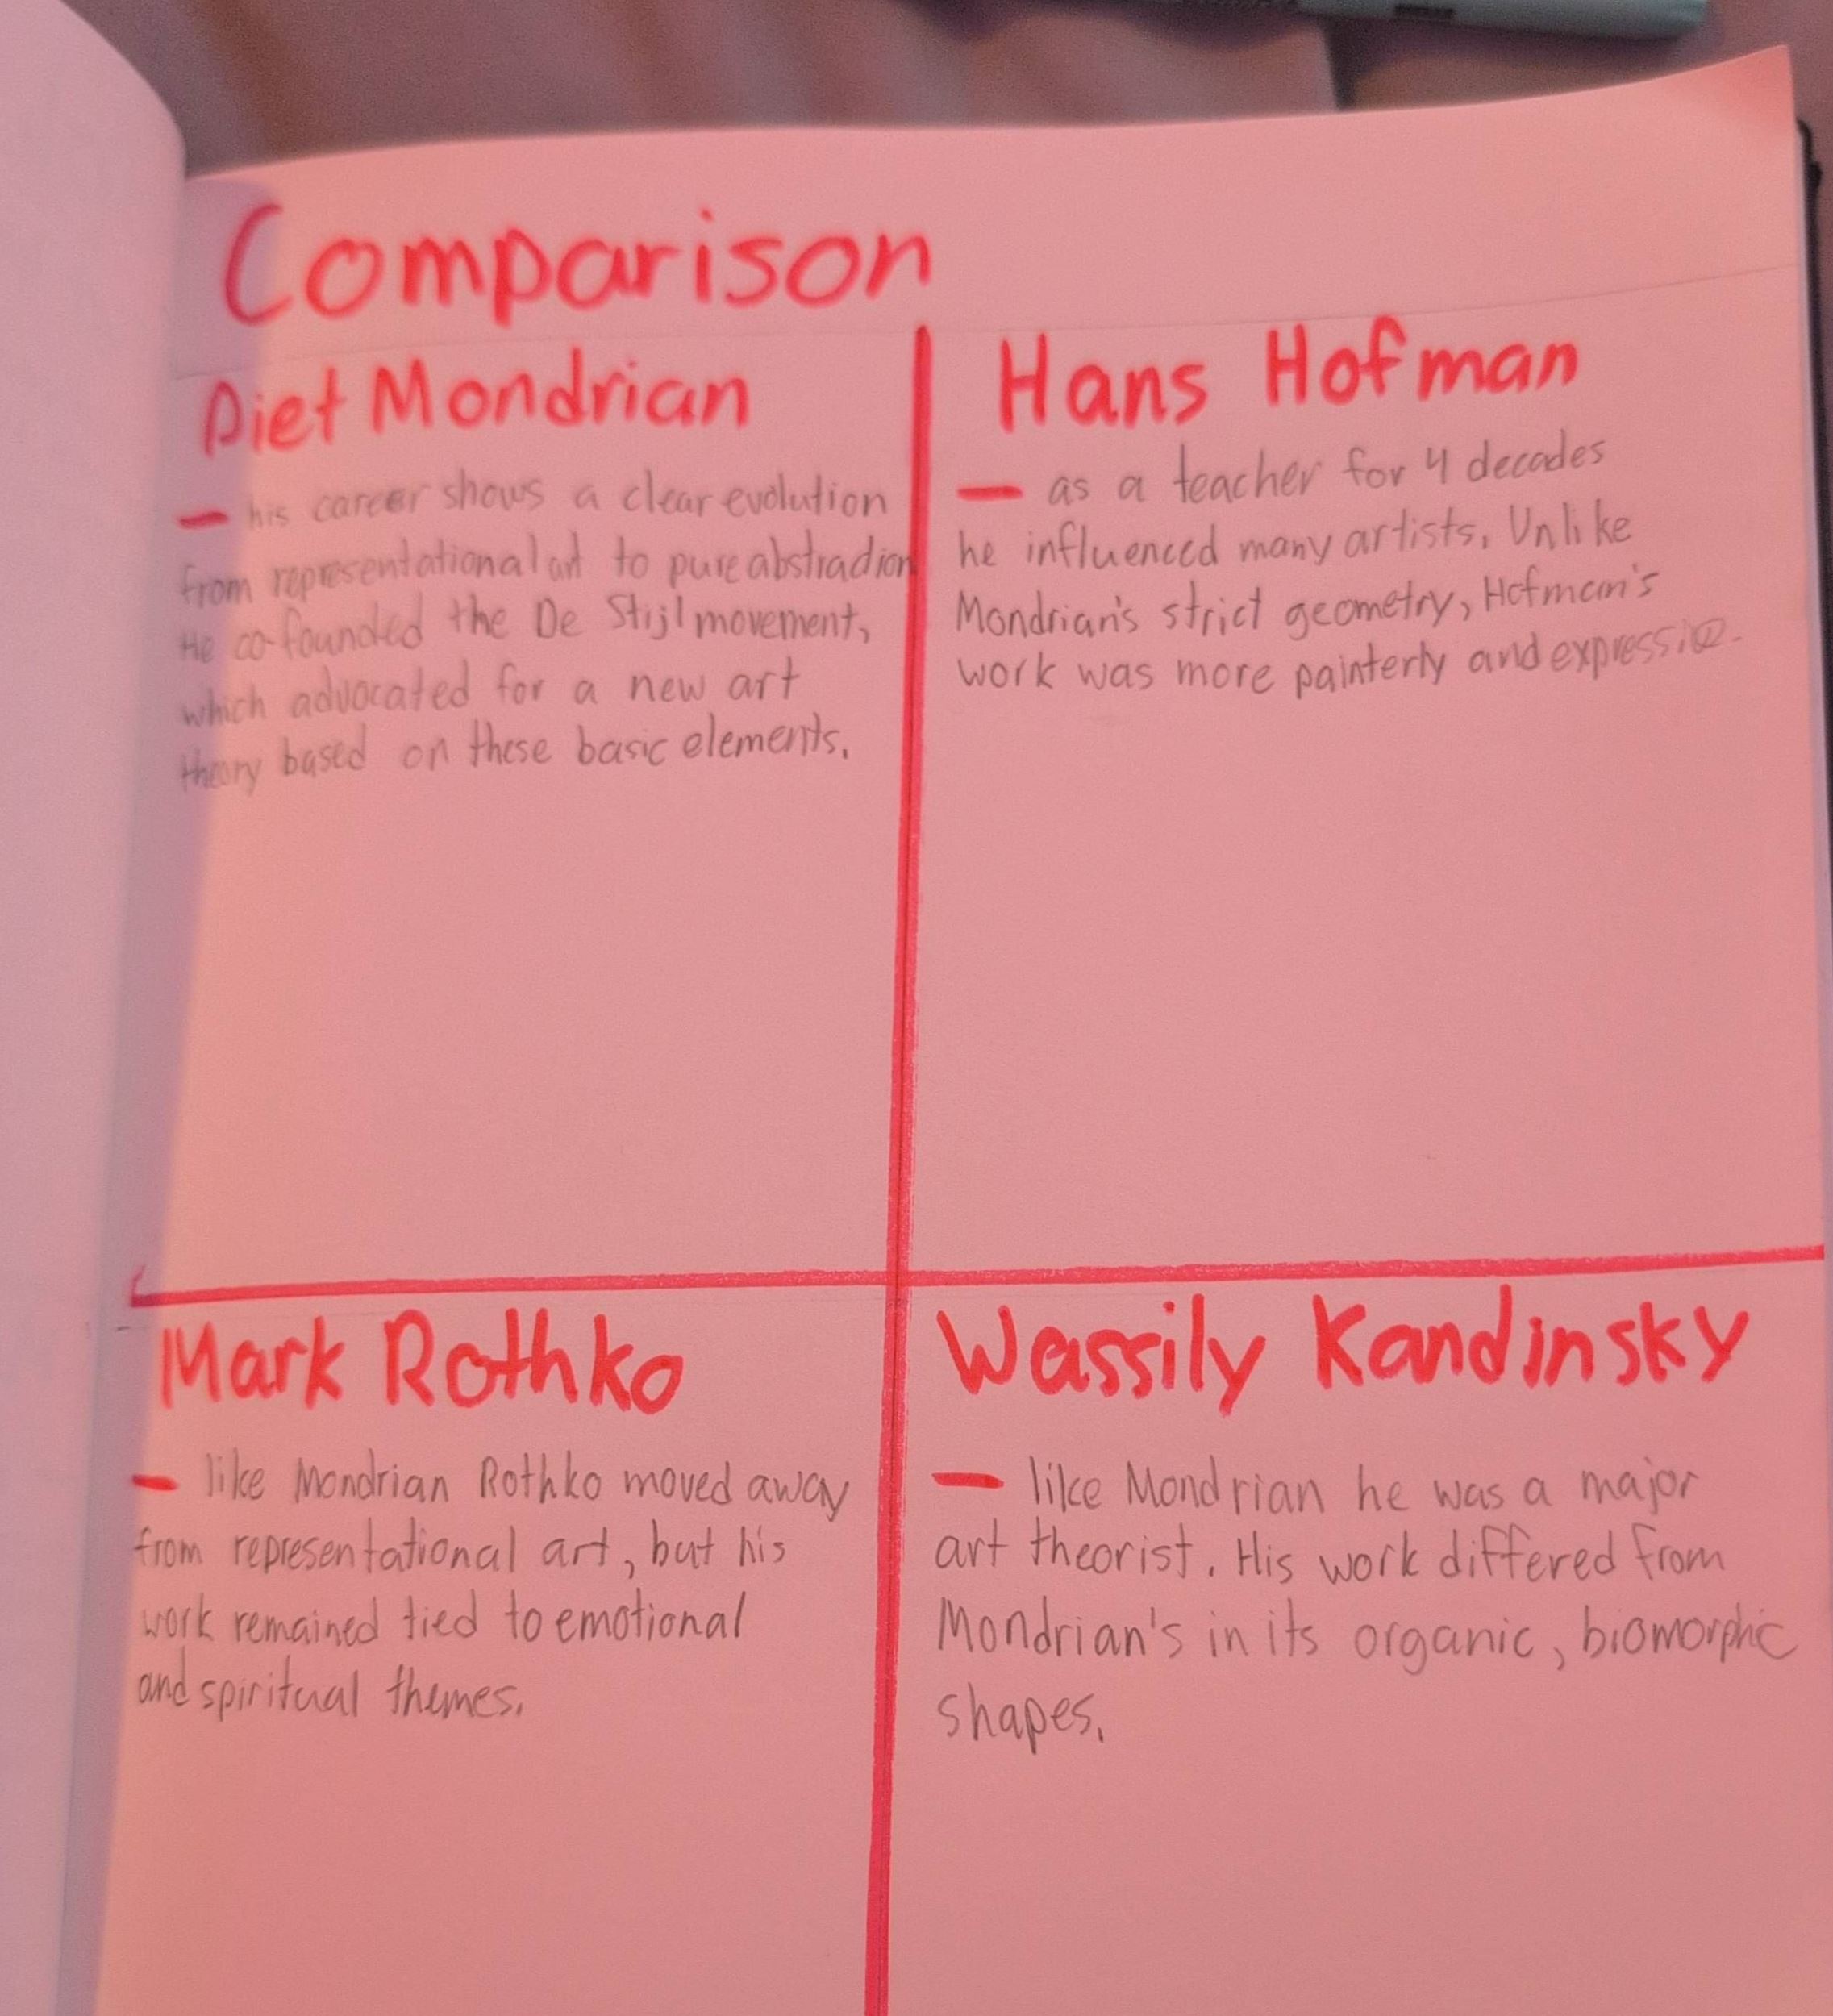 Comparison
Piet Mondrian
— his career shows a clear evolution
from representational art to pure abstraction
He co-founded the De Stijl movement,
which advocated for a new art
theory based on these basic elements.
Hans Hofman
— as a teacher for 4 decades
he influenced many artists. Unlike
Mondrian's strict geometry, Hofman's
work was more painterly and
Mark Rothko
— like Mondrian Rothko moved away
from representational art, but his
work remained tied to emotional
and spiritual themes.
Wassily Kandinsky
— like Mondrian he was a major
art theorist. His work differed from
Mondrian's in its organic, biomorphic
shapes.